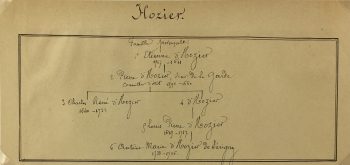 Hozier.
Famille provençale
1 Etienne d'Hozier
1547 - 1611
2 Pierre d'Hozier, sieur de la Garde
Conseiller d'Etat 1592 - 1660
3 Charles René d'Hozier
1640 - 1732
4 d'Hozier
5 Louis Pierre d'Hozier
1685 - 1767
6 Antoine Marie d'Hozier de Sérigny